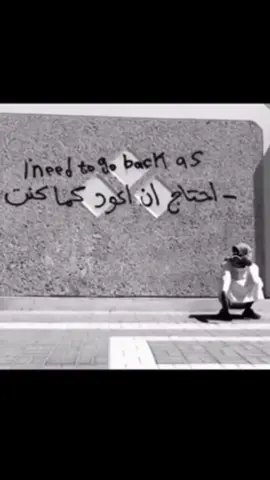 I need to go back as
- احتاج ان اعود كما كنت